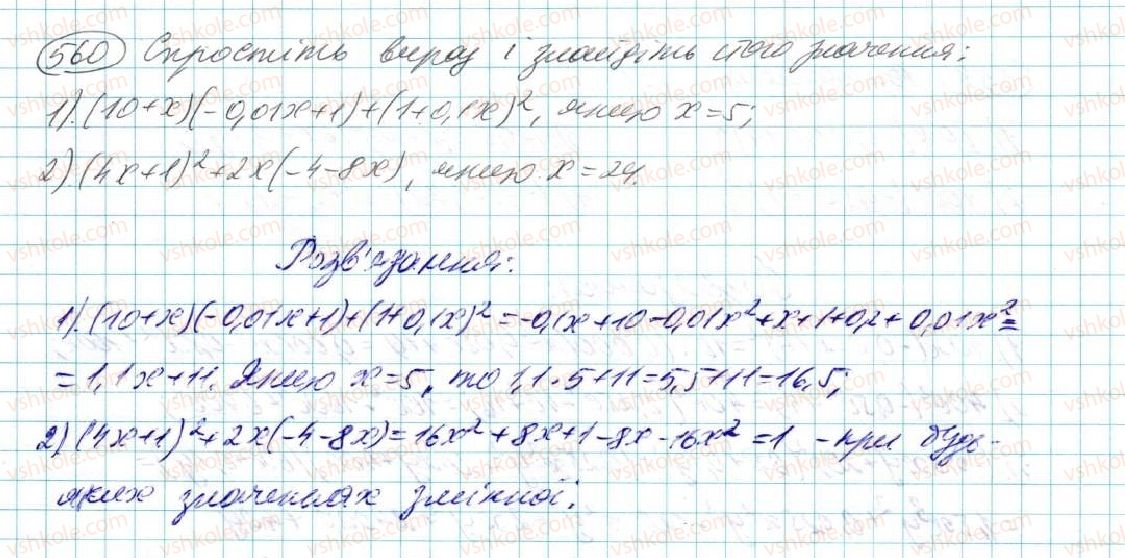 560 Спростіть вираз і знайдіть його значення:
1). (10+x)(-0,01x+1)+(1+0,1x)², якщо x=5;
2) (4x+1)²+2x(-4-8x), якщо x=24.
Розв'язання:
1). (10+x)(-0,01x+1)+(1+0,1x)²=-0,1x+10-0,01x²+x+1+0,2+0,01x²=
=1,1x+11. Якщо x=5, то 1,1·5+11=5,5+11=16,5;
2) (4x+1)²+2x(-4-8x)=16x²+8x+1-8x-16x²=1 - при будь-
яких значеннях змінної.